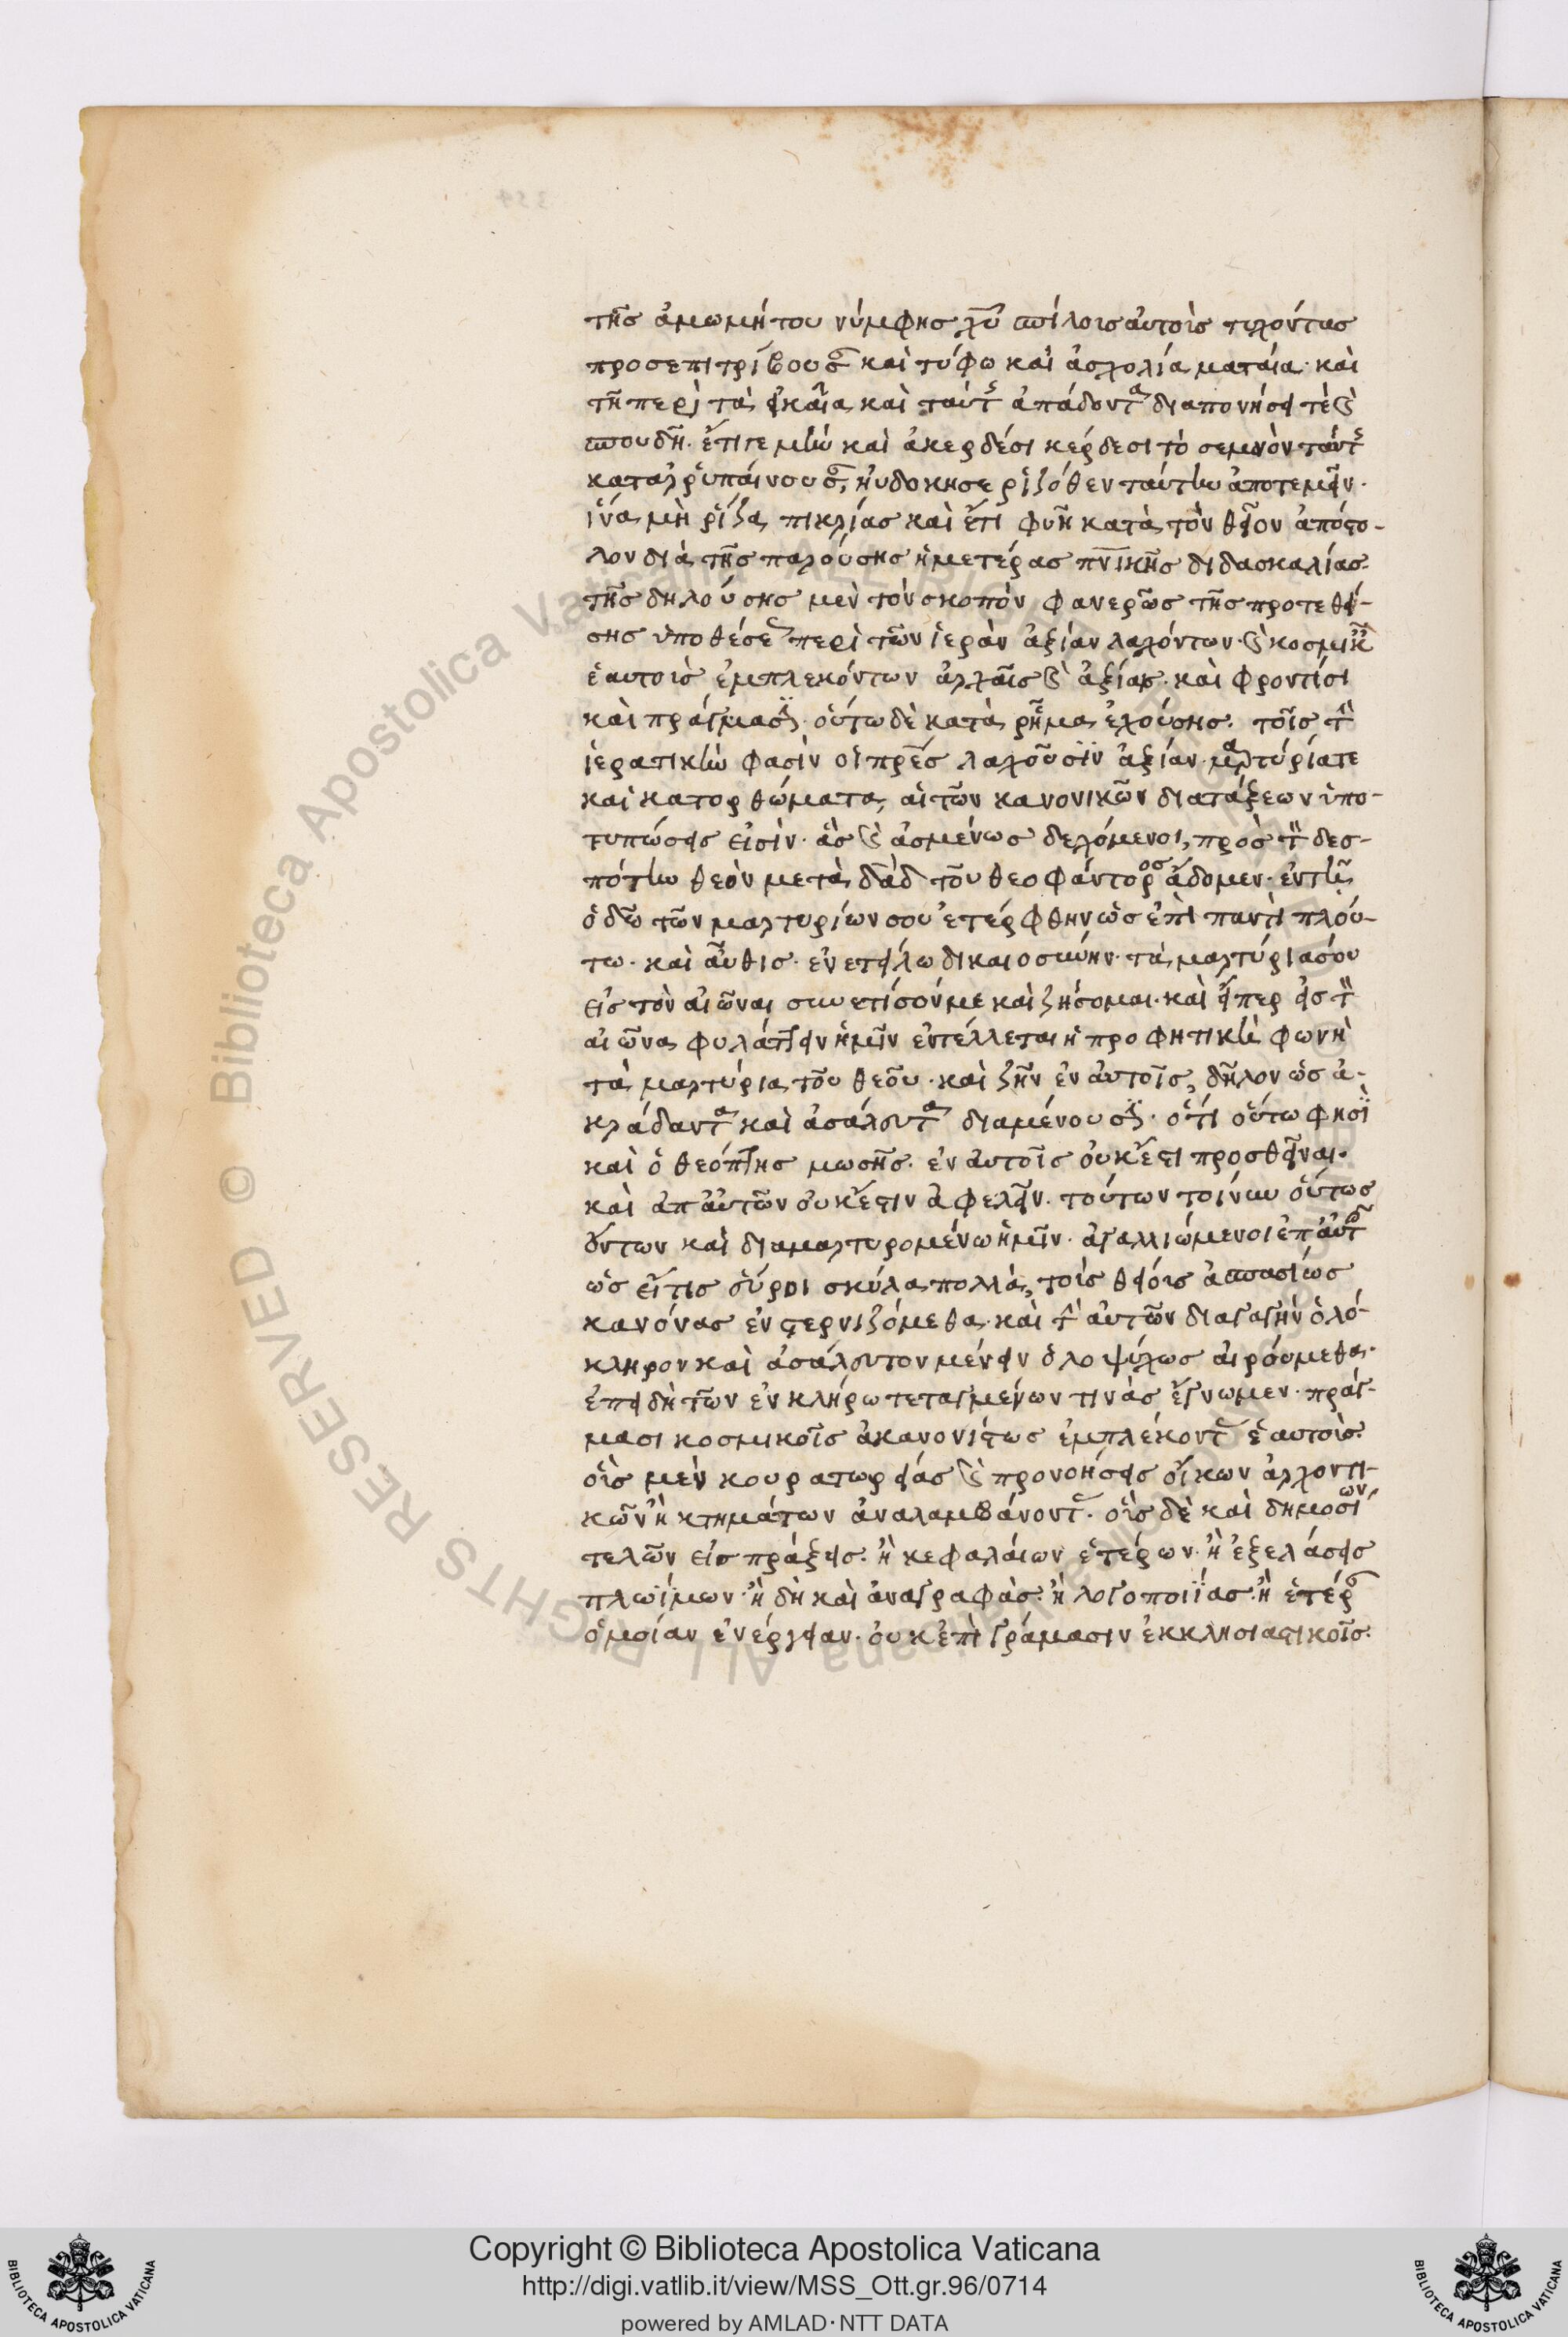 τῆς ἀμωμήτου νύμφης χῦ σπίλοις αὐτοῖς τυχόντας
προσεπιτρίβουσ καὶ τύφω καὶ ἀσχολία ματαία· καὶ
τῆ περὶ τὰ εἰκαῖα καὶ ταύτ ἀπάδοντα διαπονήσει τὲ καὶ
σπουδῆ· ἔτι γε μὴν καὶ ἀκερδέσι κέρδεσι τὸ σεμνὸν ταύτ
καταρρυπαίνουσ, ηὐδόκησε ριζόθεν ταύτην ἀποτεμεῖν·
ἵνα μὴ ρίζα πικρίας καὶ ἔτι φυῆ κατὰ τὸν θεῖον ἀπόστο-
λον διὰ τῆς παρούσης ἡμετέρας πνικῆς διδασκαλίας·
τῆς δηλούσης μὲν τὸν σκοπὸν φανερῶς τῆς προτεθεί-
σης ὑποθέσε περὶ τῶν ἱερὰν ἀξίαν λαχόντων· καὶ κοσμικ
ἑαυτοὺς ἐμπλεκόντων ἀρχαῖς καὶ ἀξίαις· καὶ φροντίσι
καὶ πράγμασι· οὕτω δὲ κατὰ ρῆμα ἐχούσης· τοῖς τὴν
ἱερατικὴν φασὶν οἱ πρες λαχοῦσιν ἀξίαν· μαρτύριά τε
καὶ κατορθώματα, αἱ τῶν κανονικῶν διατάξεων ὑπο-
τυπώσεις εἰσίν· ἃς καὶ ἀσμένως δεχόμενοι, πρὸς τὸν δεσ-
πότην θεὸν μετὰ δαδ τοῦ θεοφάντορος ἄδομεν· ἐν τῆ
ὁδῶ τῶν μαρτυρίων σου ἐτέρφθην ὡς ἐπὶ παντὶ πλού-
τω· καὶ αὖθις· ἐνετείλω δικαιοσύνην· τὰ μαρτύριά σου
εἰς τὸν αἰῶνα· συνετισόν με καὶ ζήσομαι· καὶ εἴπερ εἰς τὸν
αἰῶνα φυλάττειν ἡμῖν ἐντέλλεται ἡ προφητικὴ φωνὴ
τὰ μαρτύρια τοῦ θεοῦ· καὶ ζῆν ἐν αὐτοῖς, δῆλον ὡς ἀ-
κράδαντα καὶ ἀσάλευτα διαμένουσι· ὅτι οὕτω φησὶ
καὶ ὁ θεόπτης μωσῆς· ἐν αὐτοῖς οὐκ ἔστι προσθεῖναι·
καὶ ἀπ αὐτῶν οὐκ ἔστιν ἀφελεῖν· τούτων τοίνυν οὕτως
ὄντων καὶ διαμαρτυρομένων ἡμῖν· ἀγαλλιώμενοι ἐπ αὐτ
ὡς εἴ τις εὕροι σκύλα πολλὰ, τοὺς θείους ἀσπασίως
κανόνας ἐνστερνιζόμεθα· καὶ τὴν αὐτῶν διαταγὴν ὁλό-
κληρον καὶ ἀσάλευτον μένειν ὁλοψύχως αἱρούμεθα·
ἐπειδὴ τῶν ἐν κλήρω τεταγμένων τινὰς ἔγνωμεν· πράγ-
μασι κοσμικοῖς ἀκανονίστως ἐμπλέκοντ ἑαυτοὺς·
οἷς μὲν κουρατωρείας καὶ προνοήσεις οἴκων ἀρχοντι-
κῶν ἢ κτημάτων ἀναλαμβάνοντ· οἷς δὲ καὶ δημοσίων
τελῶν εἰσπράξεις· ἢ κεφαλαίων ἑτέρων· ἢ ἐξελάσεις
πλωΐμων· ἢ δὴ καὶ ἀναγραφὰς· ἢ λογοποιΐας· ἢ ἑτέρ
ὁμοίαν ἐνέργειαν· οὐκ ἐπὶ γράμασιν ἐκκλησιαστικοῖς·
Copyright © Biblioteca Apostolica Vaticana
http://digi.vatlib.it/view/MSS_Ott.gr.96/0714
powered by AMLAD·NTT DATA
BIBLIOTECA APOSTOLICA VATICANA
BIBLIOTECA APOSTOLICA VATICANA
Biblioteca Apostolica Vaticana ALL RIGHTS RESERVED ©